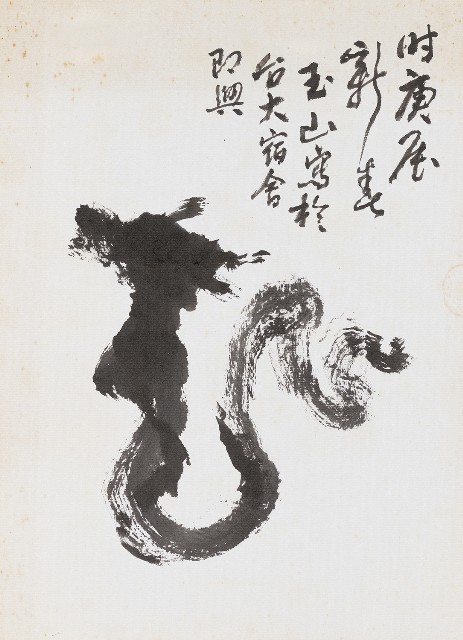 时庚辰
新春
玉山寫於
台大宿舍
即興